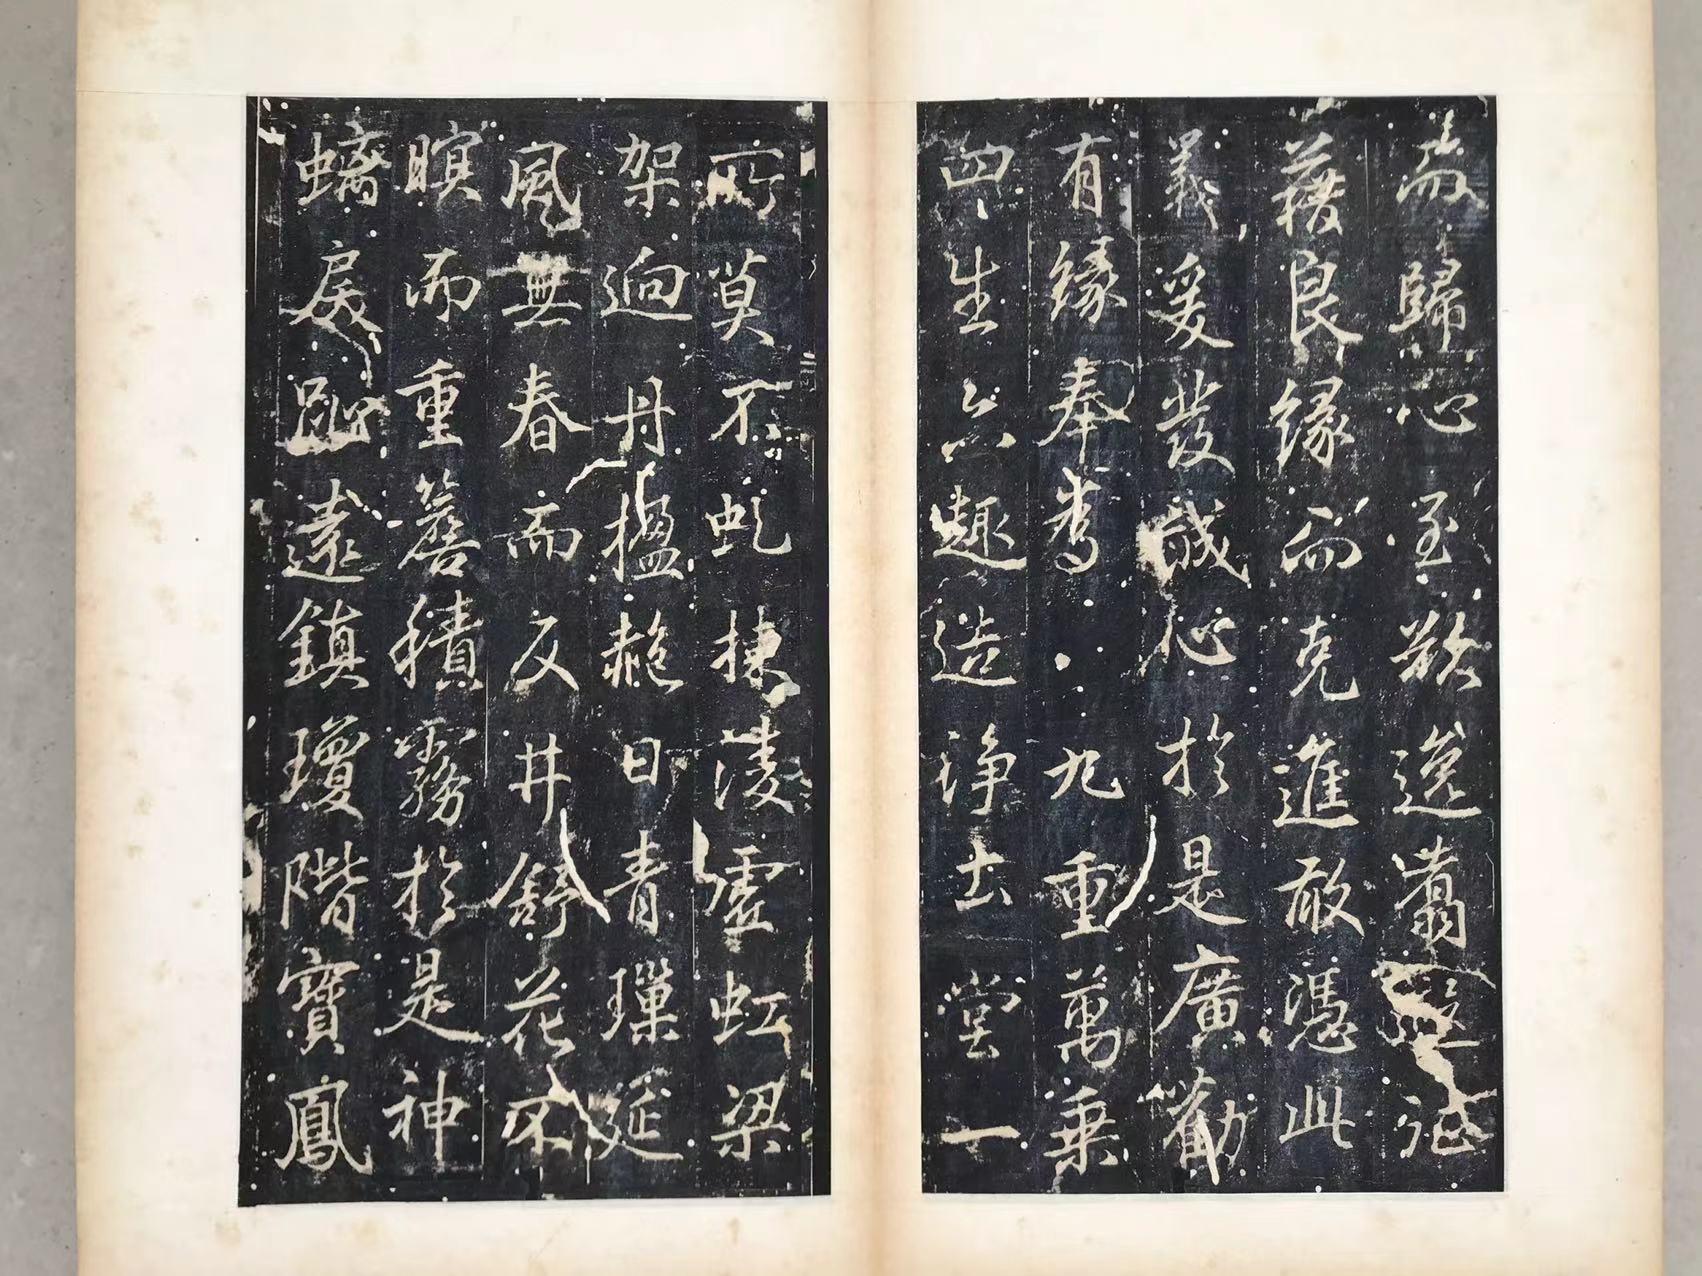 而歸心至欲逸翥征
藉良緣而克進敢憑此
義爰發誠心於是廣勸
有緣奉為九重萬乘
四生六趣造淨土堂一
所莫不虬棟凌虛虹梁
架迥丹楹赩日青璅延
風無春而反井舒花不
暝而重簷積霧於是神
螭戾趾遠鎮瓊階寶鳳